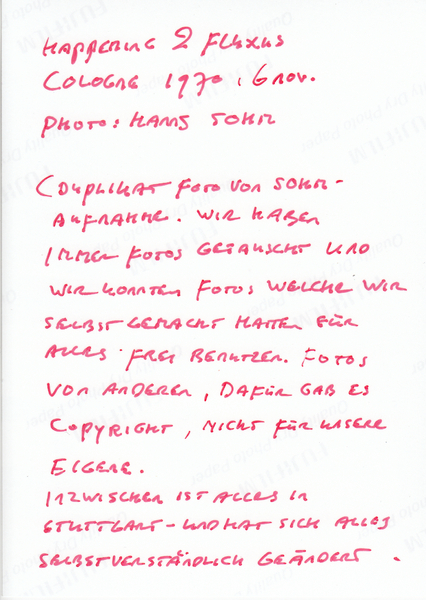 HAPPENING & FLUXUS
COLOGNE 1970, 6 NOV.
PHOTO: HANNS SOHM
(DUPLIKAT FOTO VON SOHM-
AUFNAHME. WIR HABEN
IMMER FOTOS GETAUSCHT UND
WIR KONNTEN FOTOS WELCHE WIR
SELBST GEMACHT HATTEN FÜR
ALLES FREI BENUTZEN. FOTOS
VON ANDEREN, DAFÜR GAB ES
COPYRIGHT, NICHT FÜR UNSERE
EIGENE.
INZWISCHEN IST ALLES IN
STUTTGART - UND HAT SICH ALLES
SELBSTVERSTÄNDLICH GEÄNDERT.